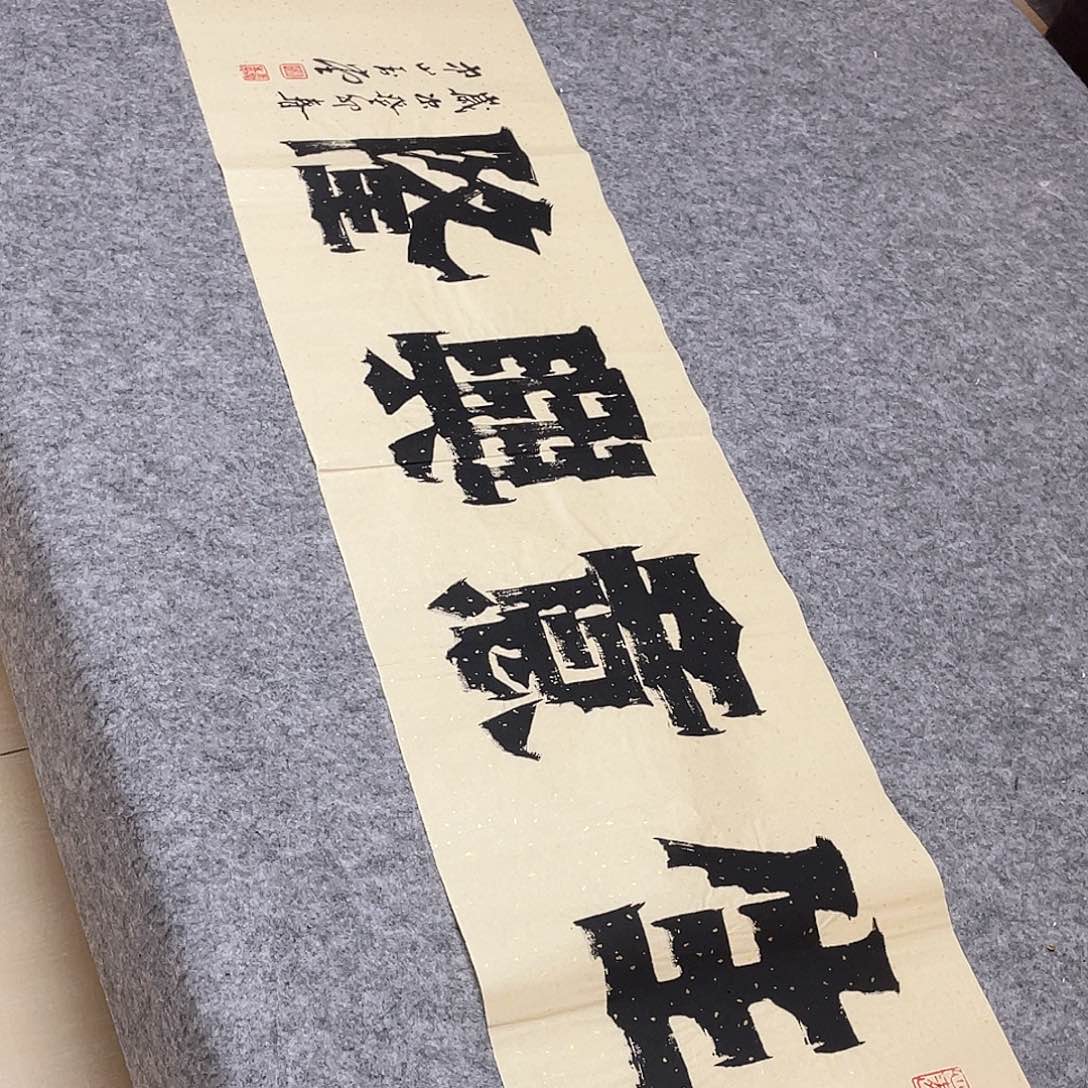 生意興隆
歲次癸卯春